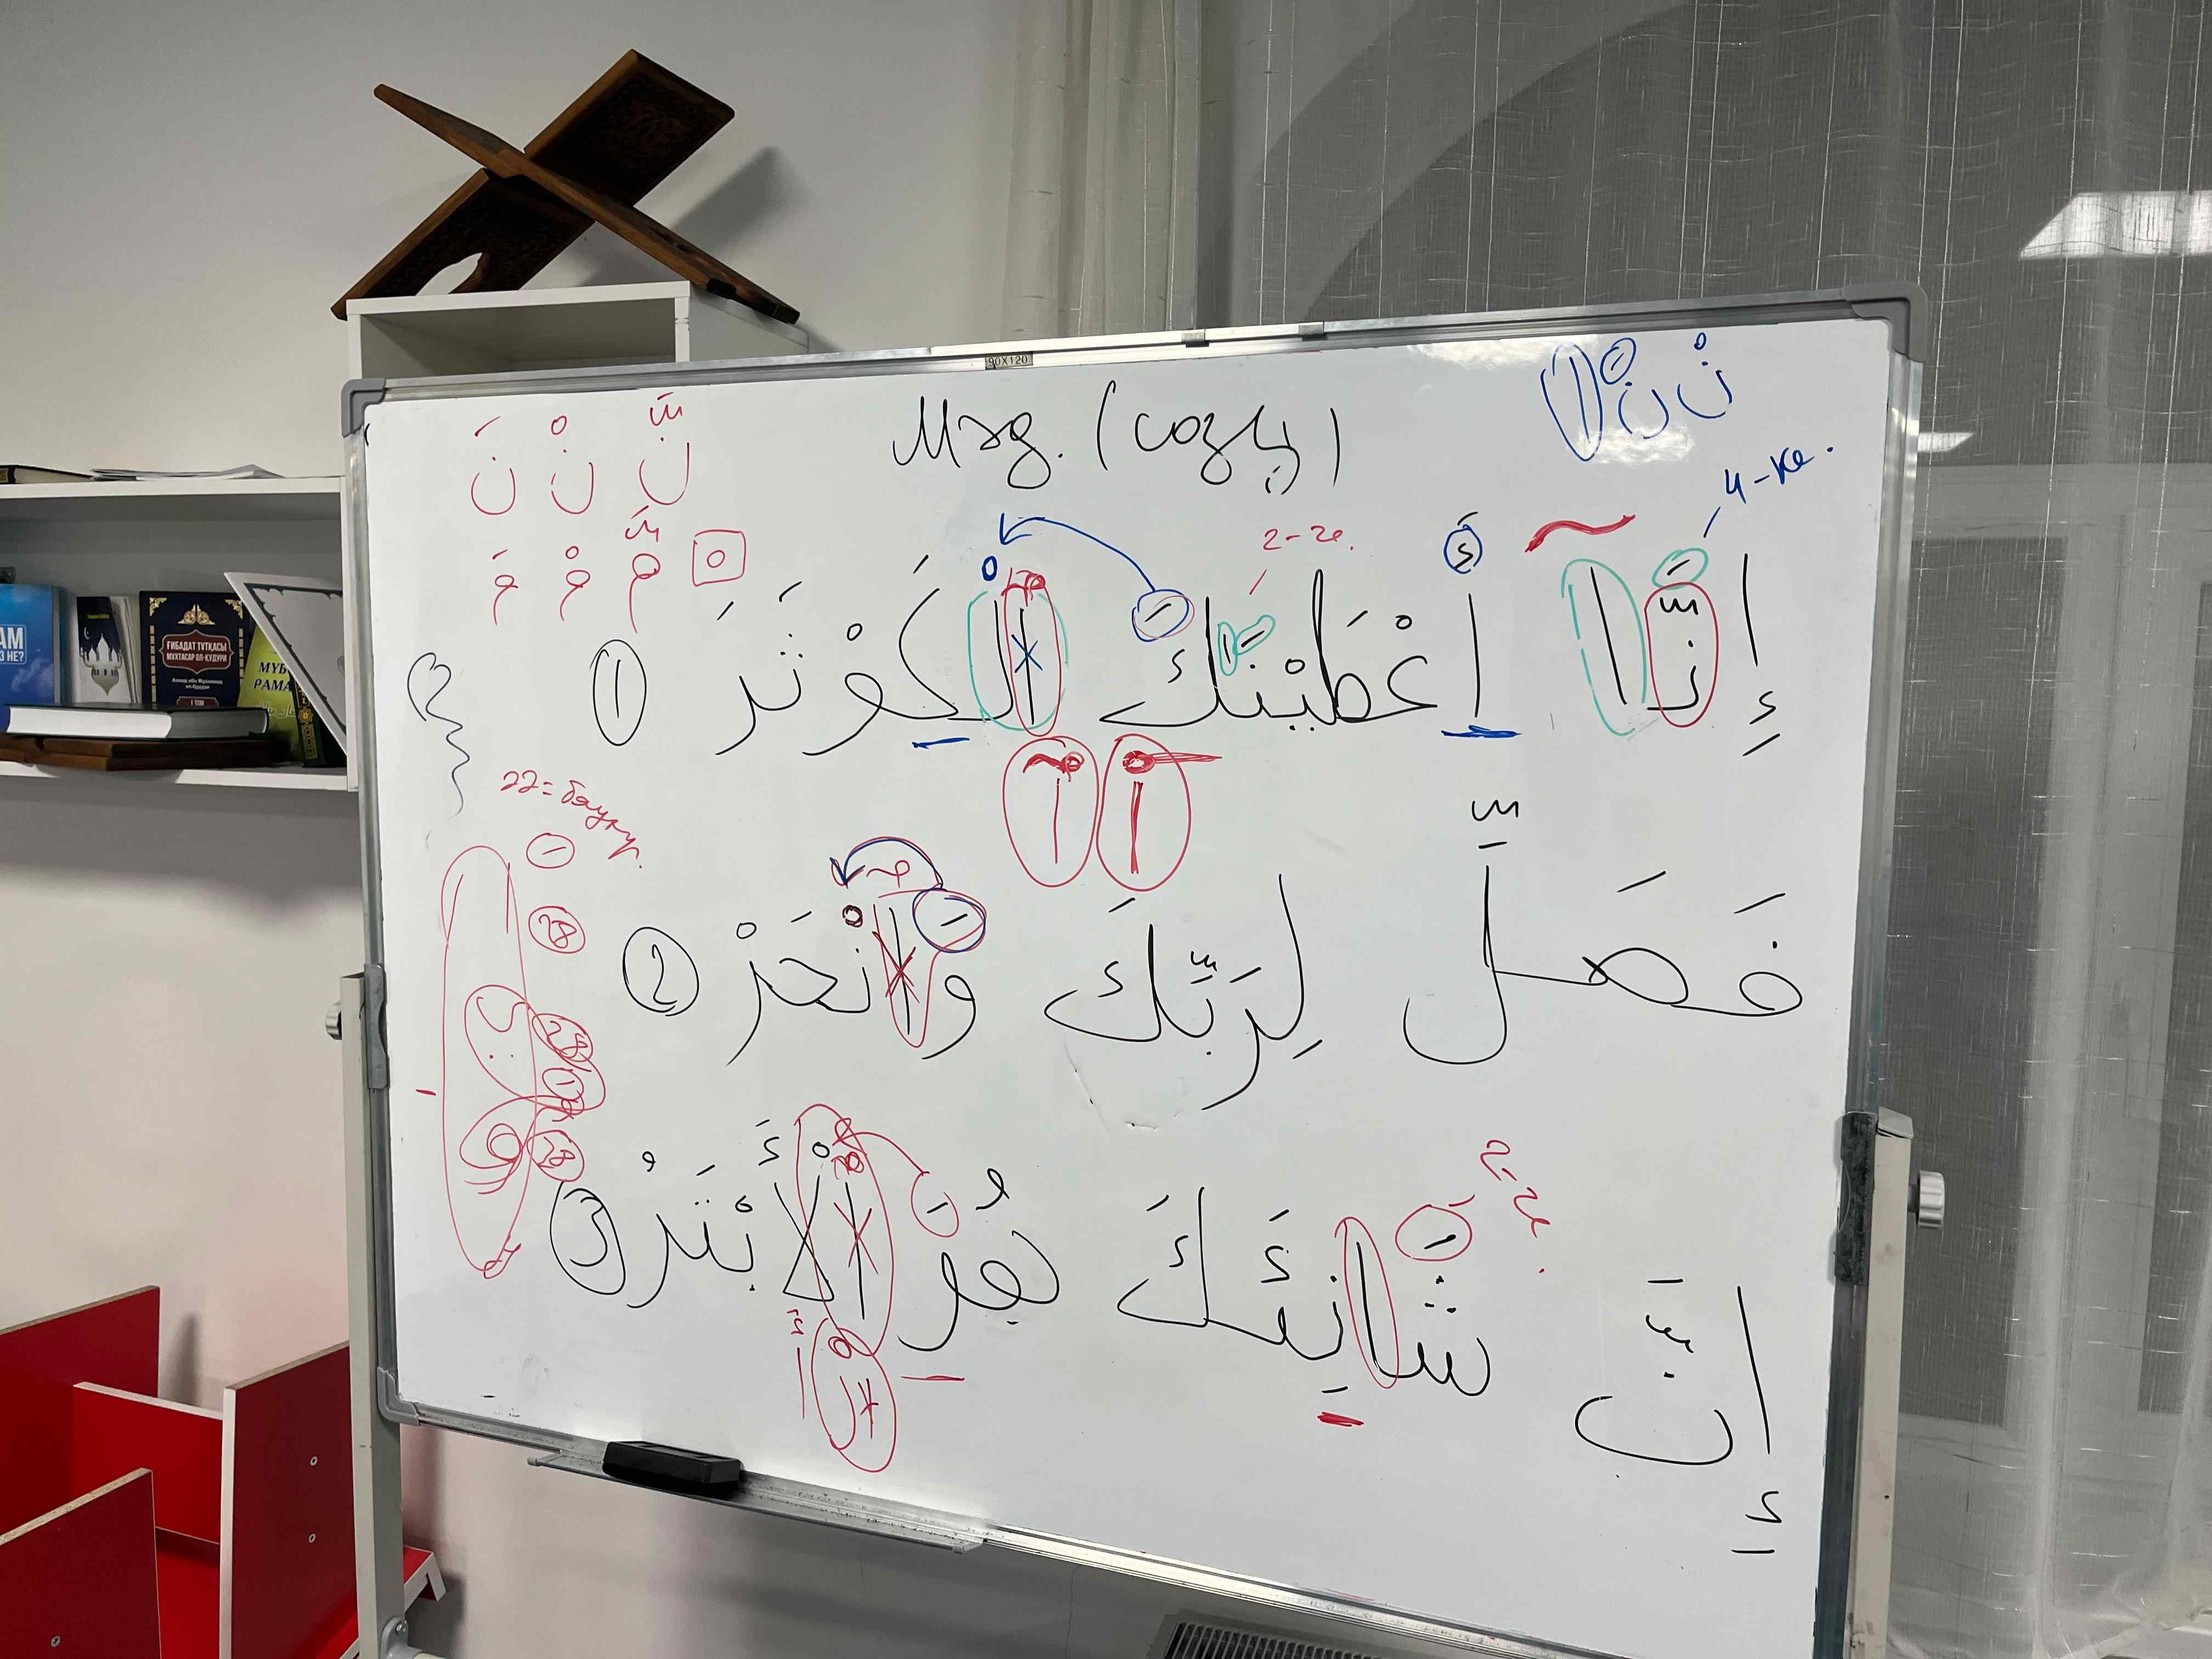 90X120
Мәд. (созу)
نْ نَ ا
نّ نْ نَ
مّ مْ مَ
4-ке.
2-ге.
إِنَّا أَعْطَيْنَٰكَ الْكَوْثَرَ 1
22=бауыр.
فَصَلِّ لِرَبِّكَ وَانْحَرْ 2
28
28
28
2-ге.
إِنَّ شَانِئَكَ هُوَ الْأَبْتَرُ 3
ҒИБАДАТ ТҰТҚАСЫ
МҰХТАСАР ӘЛ-ҚУДУРИ